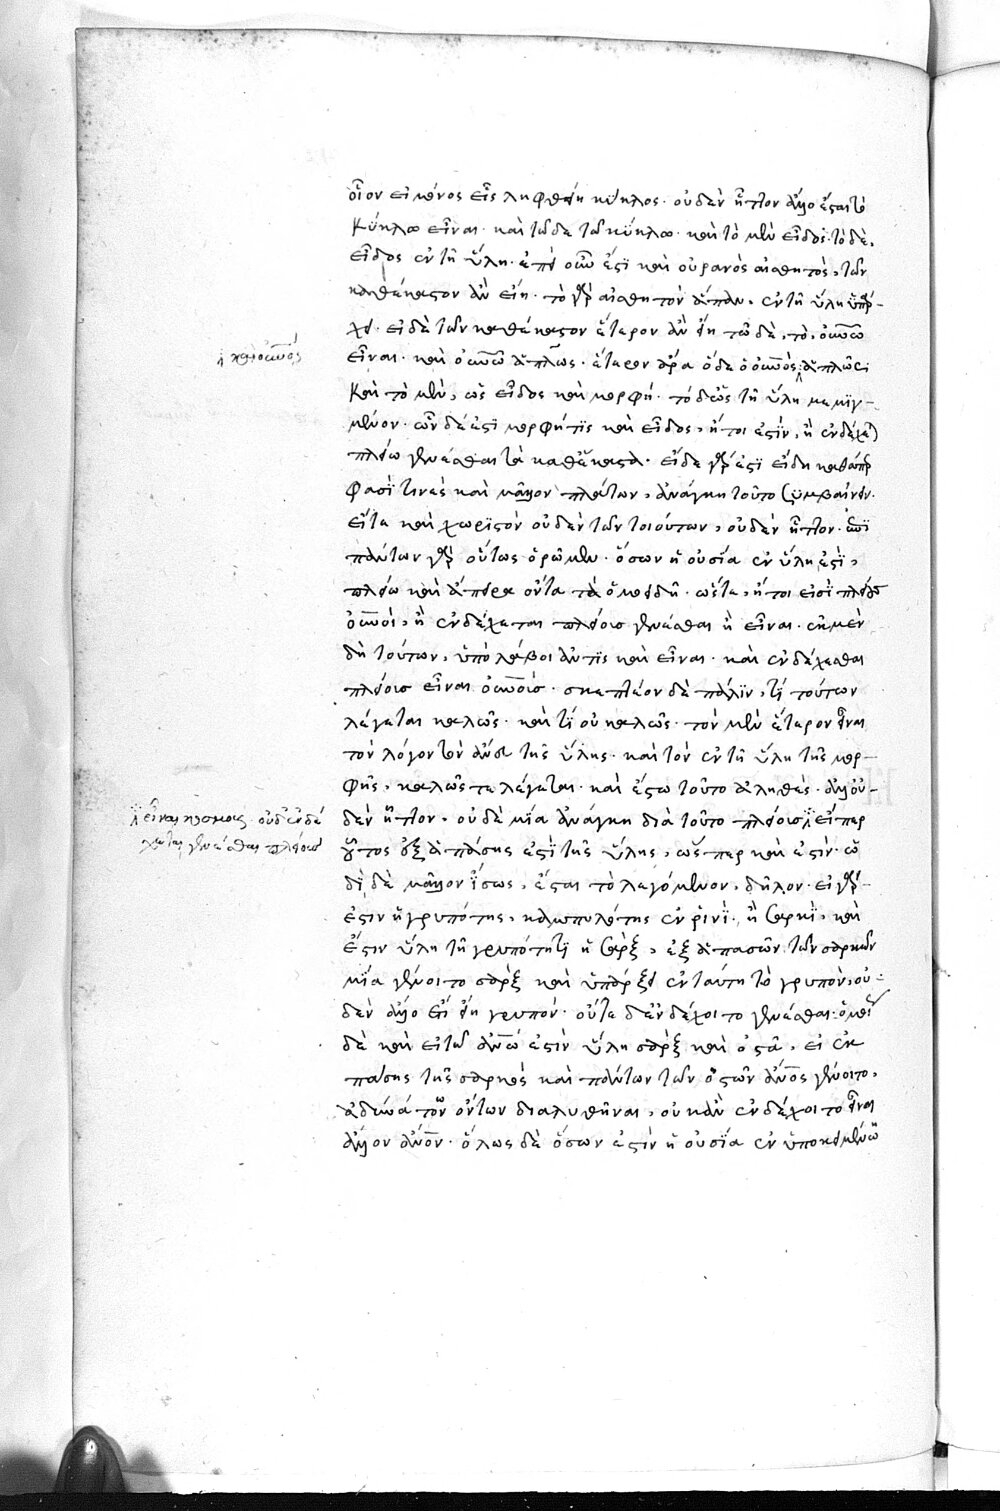 οἷον εἰ μόνος εἷς ληφθείη κύκλος· οὐδὲν ἧττον ἄλλο ἔσται τὸ
κύκλω εἶναι· καὶ τῶδε τῶ κύκλω· καὶ τὸ μὲν εἶδος· τὸ δὲ,
εἶδος ἐν τῆ ὕλη· ἐπεὶ οὖν ἐστὶ καὶ οὐρανὸς αἰσθητὸς, τῶν
καθέκαστον ἂν εἴη· τὸ γὰρ αἰσθητὸν ἅπαν, ἐν τῆ ὕλη ὑπάρ-
χει· εἰ δὲ τῶν καθέκαστον ἕτερον ἂν εἴη τῶδε, τὸ, οὐνῶ
εἶναι· καὶ οὐνῶ ἁπλῶς· ἕτερον ἄρα ὅδε ὁ οὐνὸς ἁπλῶς·
⁁ καὶ ὁ οὐνὸς
καὶ τὸ μὲν, ὡς εἶδος καὶ μορφή· τὸ δ᾽ ὡς τῆ ὕλη μεμιγ-
μένον· ὧν δέ ἐστι μορφή τις καὶ εἶδος, ἤτοι ἐστὶν, ἢ ἐνδέχεται
πλείω γενέσθαι τὰ καθέκαστα· εἴτε γάρ ἐστι εἴδη καθάπερ
φασί τινες καὶ μᾶλλον πλάτων, ἀνάγκη τοῦτο συμβαίνειν·
εἴτε καὶ χωριστὸν οὐδὲν τῶν τοιούτων, οὐδὲν ἧττον· ἐπὶ
πάντων γὰρ οὕτως ὁρῶμεν· ὅσων ἡ οὐσία ἐν ὕλη ἐστὶ,
πλείω καὶ ἄπειρα ὄντα τὰ ὁμοειδῆ· ὥστε, ἤτοι εἰσὶ πλείους
οὐνοί, ἢ ἐνδέχεται πλείους γενέσθαι ἢ εἶναι· ἐκ μὲν
δὴ τούτων, ὑπολάβοι ἄν τις καὶ εἶναι· καὶ ἐνδέχεσθαι
πλείους εἶναι οὐνοὺς· σκεπτέον δὲ πάλιν, τί τούτων
λέγεται καλῶς· καὶ τί οὐ καλῶς· τὸν μὲν ἕτερον εἶναι
τὸν λόγον τὸν ἄνευ τῆς ὕλης· καὶ τὸν ἐν τῆ ὕλη τῆς μορ-
φῆς, καλῶς τε λέγεται· καὶ ἔστω τοῦτο ἀληθὲς· ἀλλ᾽ οὐ-
δὲν ἧττον· οὐδεμία ἀνάγκη διὰ τοῦτο πλείους ⁁ εἴπερ
⁁ εἶναι κόσμους· οὐδ᾽ ἐνδέ
χεται γενέσθαι πλείους
οὗτος ἐξ ἁπάσης ἐστὶ τῆς ὕλης, ὥσπερ καὶ ἔστιν· ὡ
δὶ δὲ μᾶλλον ἴσως, ἔσται τὸ λεγόμενον, δῆλον· εἰ γάρ
ἐστιν ἡ γρυπότης, καμπυλότης ἐν ῥινὶ· ἢ σαρκὶ, καὶ
ἔστιν ὕλη τῆ γρυπότητι ἡ σὰρξ, ἐξ ἁπασῶν τῶν σαρκῶν
μία γένοιτο σὰρξ καὶ ὑπάρξει ἐν ταύτη τὸ γρυπὸν, οὐ-
δὲν ἄλλο ἔτι εἴη γρυπόν· οὔτε δ᾽ ἐνδέχοιτο γενέσθαι· ὁμοί
δὲ καὶ εἰ τῶ ἀνῶ ἐστὶν ὕλη σὰρξ καὶ ὀστᾶ, εἰ ἐκ
πάσης τῆς σαρκὸς καὶ πάντων τῶν ὀστῶν ἄνος γένοιτο,
ἀδυνάτων ὄντων διαλυθῆναι, οὐκ ἂν ἐνδέχοιτο εἶναι
ἄλλον ἄνον· ὅλως δὲ ὅσων ἐστὶν ἡ οὐσία ἐν ὑποκειμένω